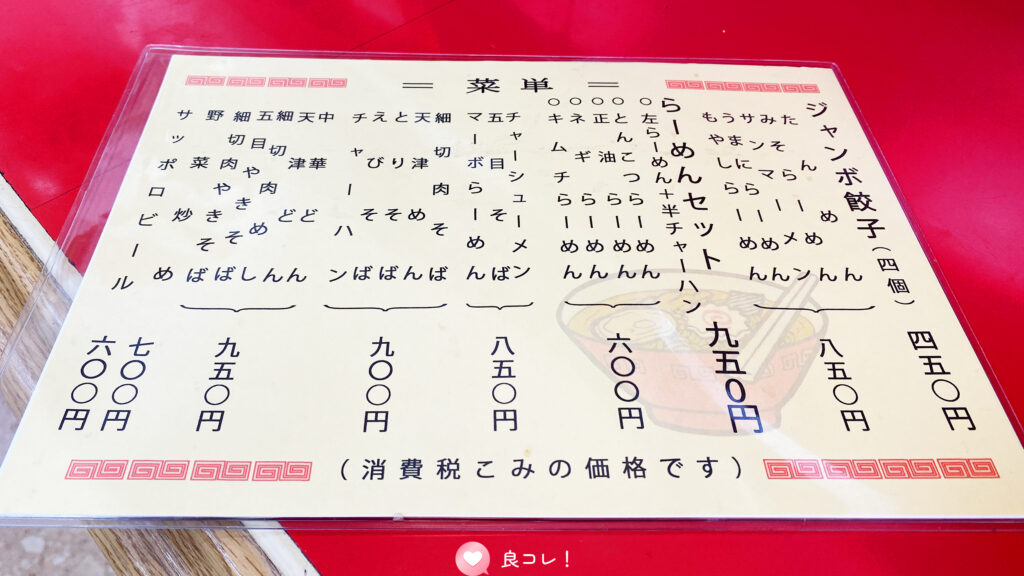 ＝ 菜単 ＝
ジャンボ餃子（四個） 四五〇円
たんめん
みそらーめん
サンマーメン
うまにらーめん
もやしらーめん
八五〇円
らーめんセット 九五0円
○左らーめん＋半チャーハン
○とんこつらーめん
○正油らーめん
○ネギらーめん
○キムチらーめん
六〇〇円
チャーシューメン
五目そば
マーボらーめん
八五〇円
細切肉そば
天津めん
とりそば
えびそば
チャーハン
九〇〇円
中華どん
天津どん
細切肉めし
五目やきそば
細切肉やきそば
九五〇円
野菜炒め 七〇〇円
サッポロビール 六〇〇円
（消費税こみの価格です）
良コレ！